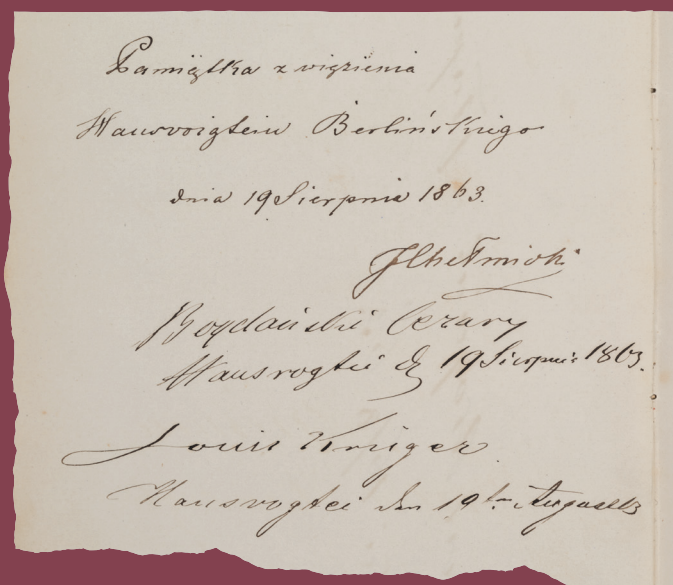 Pamiątka z więzienia
Hausvoigteiu Berlińskiego
dnia 19 Sierpnia 1863.
JChełmicki
Bogdański Cezary
Hausvogtei d 19 Sierpnia 1863.
Louis Krüger
Hausvogtei den 19ten August 63